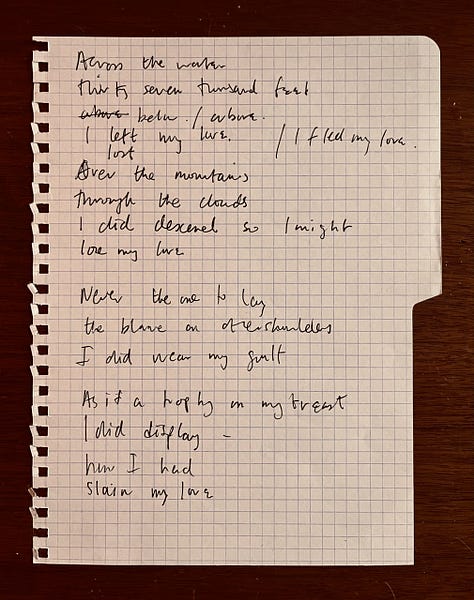 Across the water
thirty seven thousand feet
above below. / above.
I left my love. / I fled my love.
lost
Over the mountains
through the clouds
I did descend so I might
lose my love
Never the one to lay
the blame on other shoulders
I did wear my guilt
As if a trophy on my breast
I did display –
how I had
slain my love